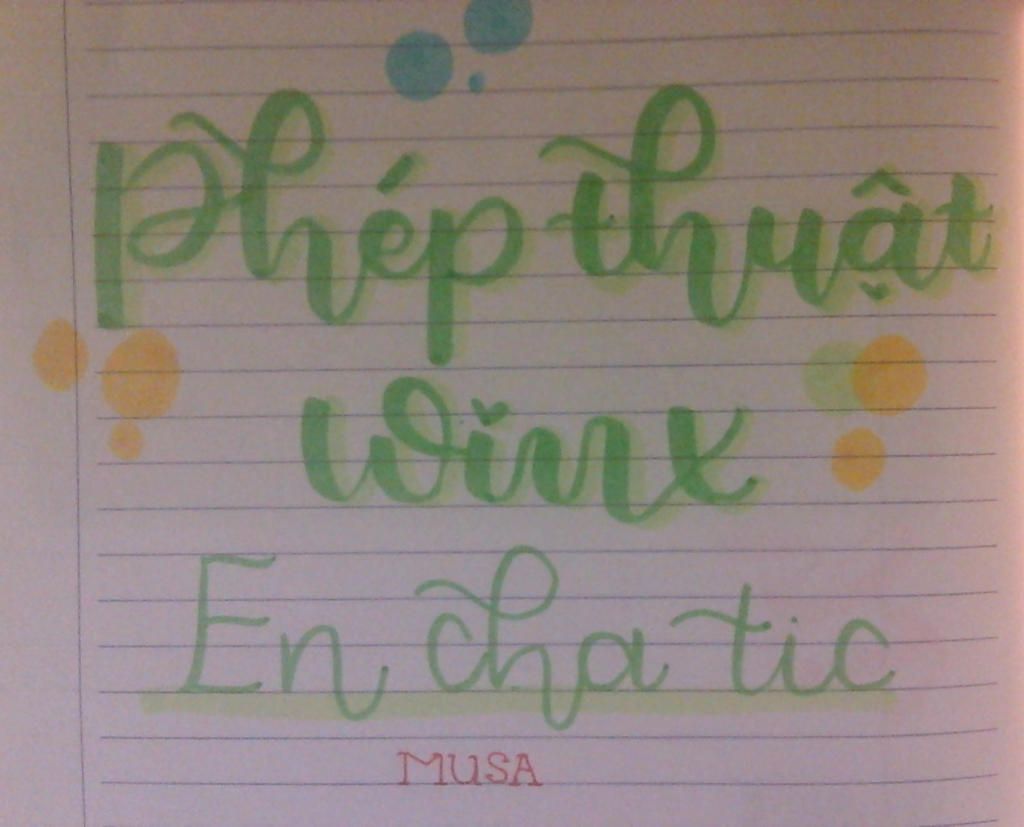 Phép thuật
winx
En cha tic
MUSA